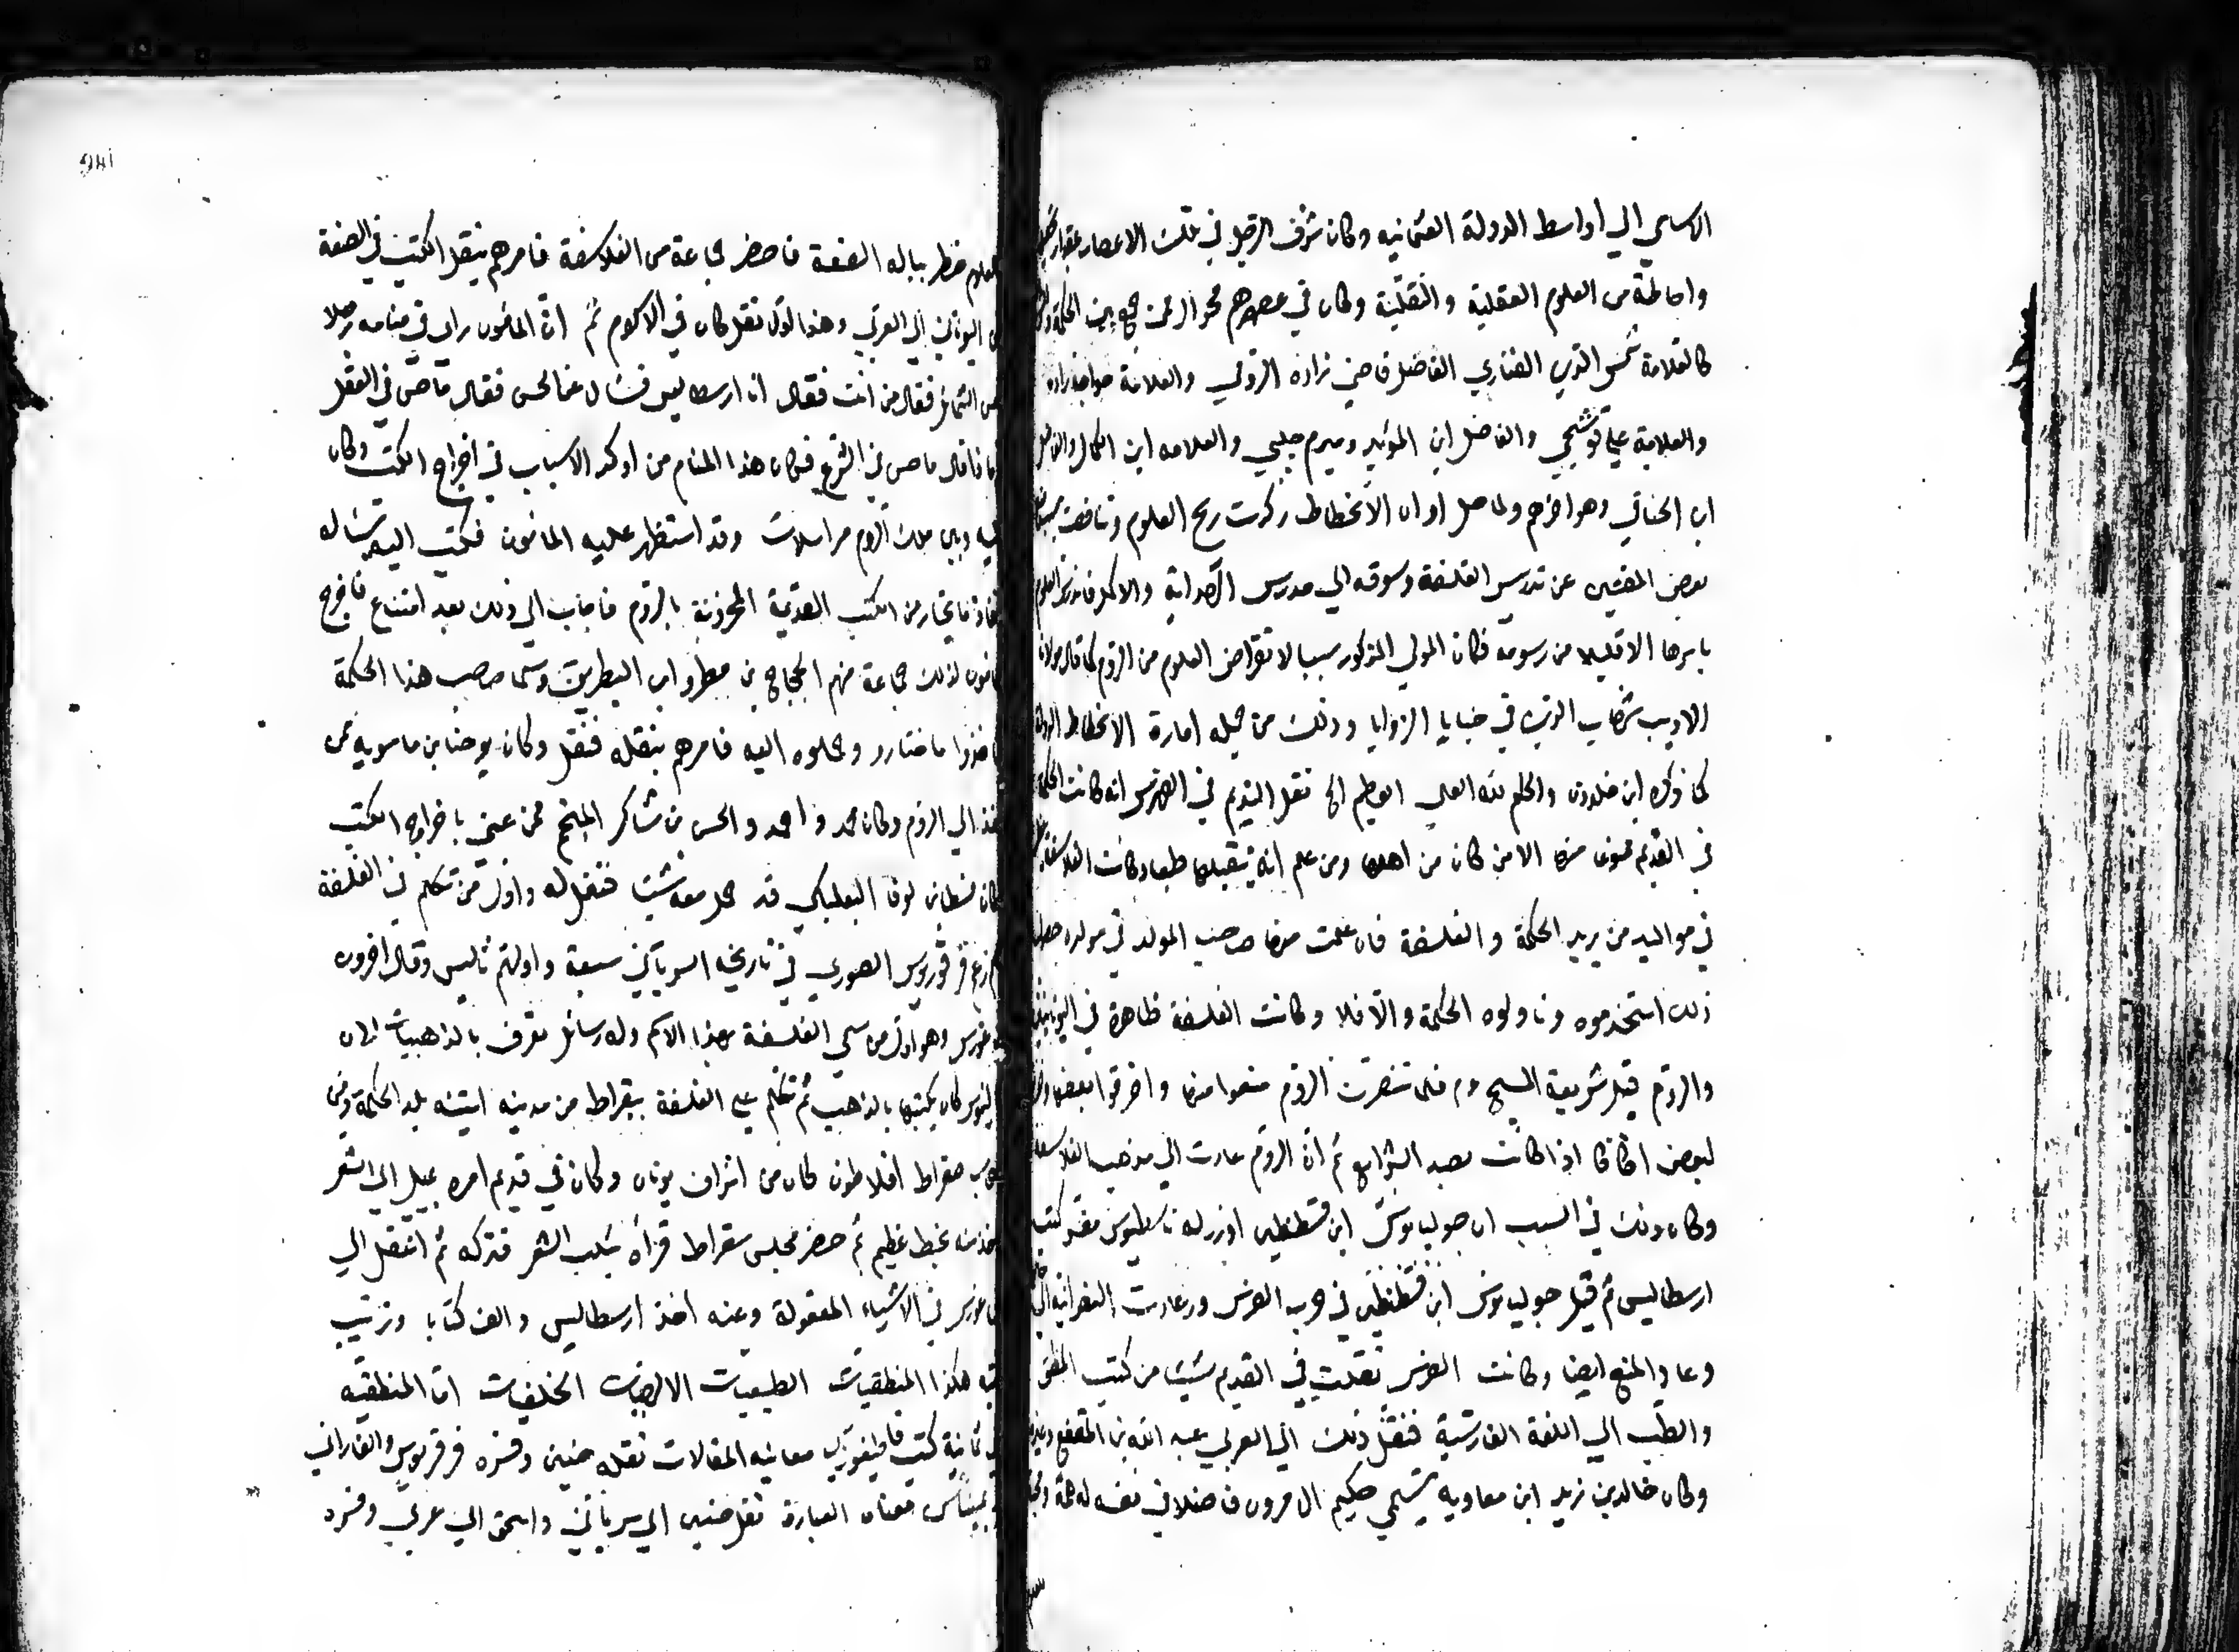 الاسلامي الي اواسط الدولة العثمانيه وكان شرف الرجل في تلك الاعصار بمقدار تحصيله
واحاطة من العلوم العقلية والنقلية وكان في عصرهم فحول ممن جمع بين الحكمة
كالعلامة شمس الدين الفناري الفاضل قاضي زاده الرومي والعلامة خواجه زاده
والعلامة علي قوشجي والفاضل ابن المؤيد وميرم چلبي والعلامه ابن الكمال والفاضل
ابن الحنائي وهو اخرهم ولما حل اوان الانحطاط ركدت ريح العلوم وتناقصت بسبب
بعض المفتيين عن تدريس الفلسفة وسوقه الي مدرس الهداية والاكمل فاندرست العلوم
باسرها الا قليلا من رسومه فكان المولي المذكور سببا لانقراض العلوم من الروم كما قال مولانا
الاديب شهاب الدين في خبايا الزوايا وذلك من جملة امارة الانحطاط الدولة
كما ذكره ابن خلدون والحكم لله العلي العظيم الخ نقل النديم في الفهرس انه كانت الحكمة
في القديم ممنوعا منها الا من كان من اهلها ومن علم انه يتقبلها طبعا وكانت الفلاسفة
في مواليد من يريد الحكمة والفلسفة فان علمت منها صاحب المولد في مولده حصول
ذلك استخدموه وناولوه الحكمة والا فلا وكانت الفلسفة ظاهرة في اليونانيين
والروم قبل شريعة المسيح عم فلما تنصرت الروم منعوا منها واحرقوا بعضها
لبعض اذا كانت بضد الشرايع ثم ان الروم عادت الي مذهب الفلاسفة
وكان ذلك في السبب ان جوليانوس ابن قسطنطين اوزر له ثامسطيوس مفسر كتب
ارسطاليس ثم قتل جوليانوس ابن قسطنطين في حرب الفرس وعادت النصرانية الي
وعاد المنع ايضا وكانت الفرس نقلت في القديم شيئا من كتب المنطق
والطب الي اللغة الفارسية فنقل ذلك الي العربي عبد الله بن المقفع وغيره
وكان خالد بن يزيد ابن معاويه يسمي حكيم ال مرون فاضلا في نفسه له همة
للعلوم خطر بباله الصنعة فاحضر جماعة من الفلاسفة فامرهم بنقل الكتب في الصنعة
من اليوناني الي العربي وهذا اول نقل كان في الاسلام ثم ان المأمون راي في منامه رجلا
حسن الشمائل فقال من انت فقال انا ارسطاليس فسال عن الحسن فقال ما حسن في العقل
ماذا قال ما حسن في الشرع فكان هذا المنام من اوكد الاسباب في اخراج الكتب وكان
بينه وبين ملك الروم مراسلات وقد استظهر عليه المامون فكتب اليه تسأله
انفاذ ما يختار من الكتب القديمة المخزونة بالروم فاجاب الي ذلك بعد امتناع فاخرج
المامون لذلك جماعة منهم الحجاج بن مطر وابن البطريق وسلما صاحب هذا الحكمة
فاخذوا ما اختاروا وحملوه اليه فامرهم بنقله فنقل وكان يوحنا بن ماسويه ممن
نفذ الي الروم وكان محمد واحمد والحسن بن شاكر المنجم ممن عني باخراج الكتب
وكان قسطا بن لوقا البعلبكي قد حمل معه شيئا فنقل له واول من تكلم في الفلسفة
زعم فرفوريوس الصوري في تاريخه السرياني سبعة واولهم ثاليس وقال اخرون
فوثاغورس وهو اول من سمي الفلسفة بهذا الاسم وله رسائل تعرف بالذهبيات لان
جالينوس كان يكتبها بالذهب ثم تكلم علي الفلسفة سقراط من مدينه اثينه بلد الحكمة ومن
اصحاب سقراط افلاطون كان من اشراف يونان وكان في قديم امره يميل الي الشعر
فاخذ منه بحظ عظيم ثم حضر مجلس سقراط فراه يثلب الشعر فتركه ثم انتقل الي
فيثاغورس في الاشياء المعقولة وعنه اخذ ارسطاليس والف كتابا وترتيب
كتبه هكذا المنطقيات الطبيعيات الالهيات الخلقيات اما المنطقيه
فهي ثمانية كتب قاطيغورياس معناه المقالات نقله حنين وفسره فرفريوس والفارابي
معناه العبارة نقل حنين الي سرياني واسحق الي عربي وفسره